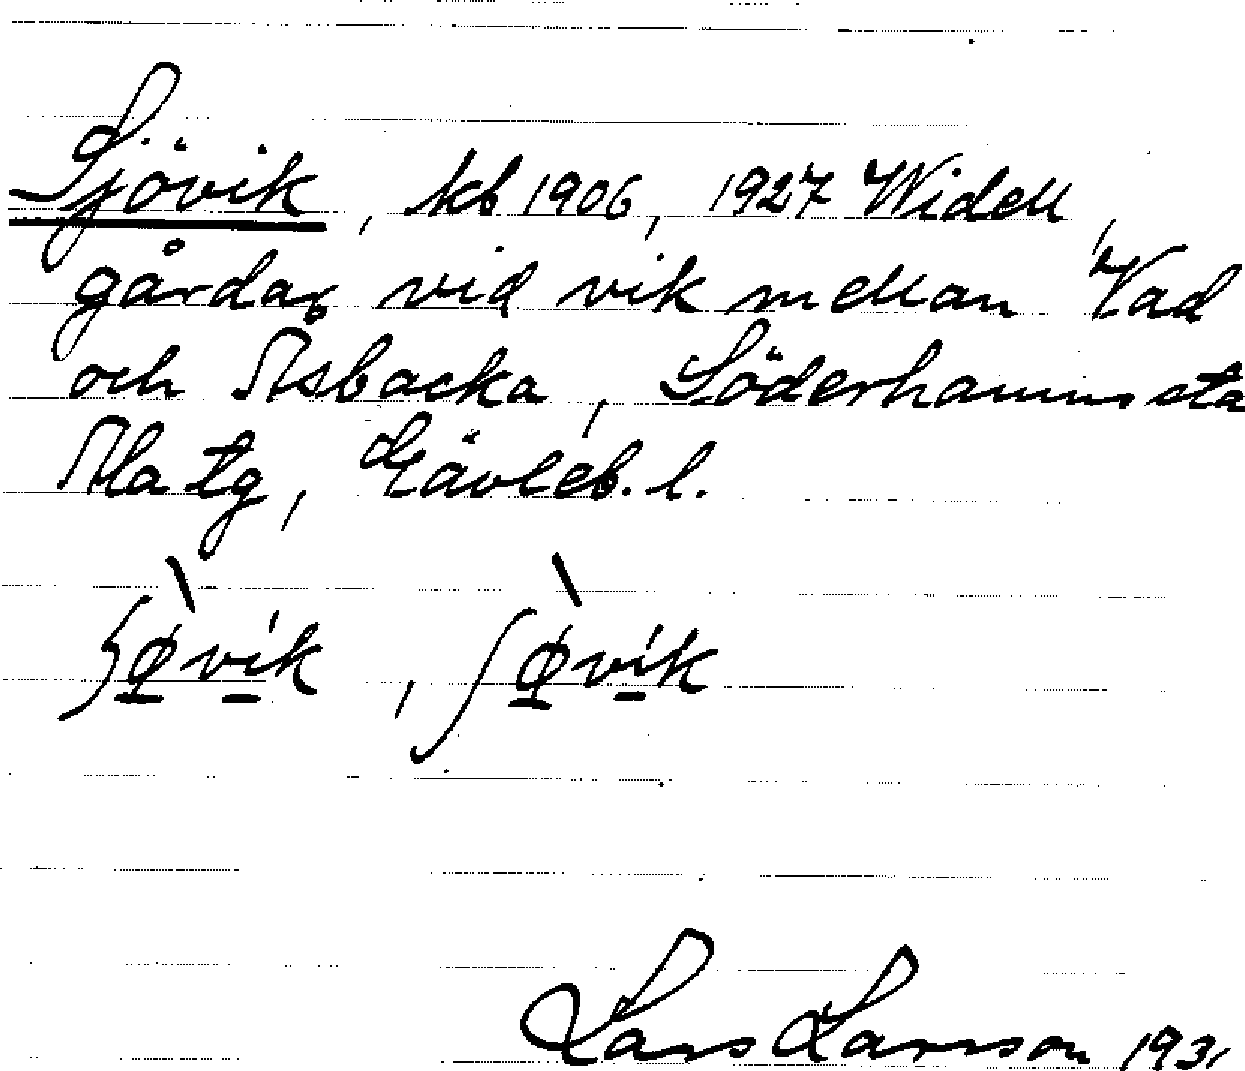 Sjövik, kb 1906, 1927 Widell,
gårdar vid vik mellan Vad
och Åsbacka, Söderhamns sta
Ala tg, Gävleb. l.
ʃø̀vik, ʃø̀vik
Lars Larsson 1931